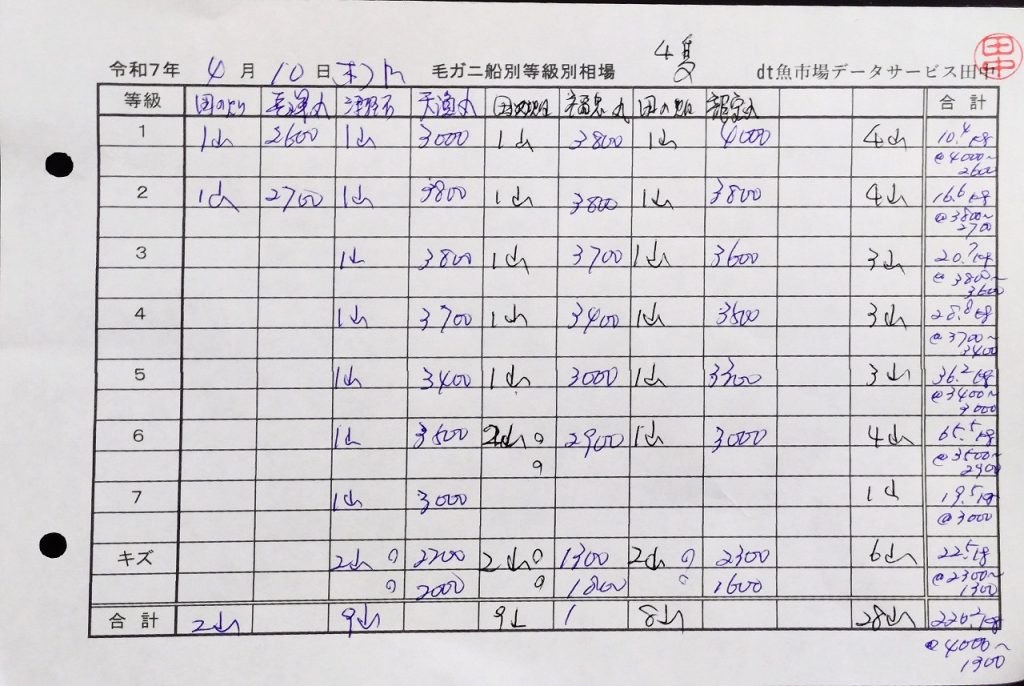 4隻
令和7年 4月10日(木) 毛ガニ船別等級別相場 dt魚市場データサービス田中
田中
等級 天漁丸 合計
1 1山 2600 1山 3000 1山 3800 1山 4000 4山 10.4kg
@4000~
2600
2 1山 2700 1山 3800 1山 3800 1山 3800 4山 16.6kg
@3800~
2700
3 1山 3800 1山 3700 1山 3600 3山 20.7kg
@3800~
3600
4 1山 3700 1山 3400 1山 3500 3山 28.8kg
@3700~
3400
5 1山 3400 1山 3000 1山 3300 3山 36.2kg
@3400~
3000
6 1山 3500 2山 2900 1山 3000 4山 65.5kg
@3500~
2900
7 1山 3000 1山 19.5kg
@3000
キズ 2山 2200 2山 1300 2山 2300 6山 22.5kg
2000 1800 1600 @2300~
1300
合計 2山 9山 9山 8山 28山 220.2kg
@4000~
1300